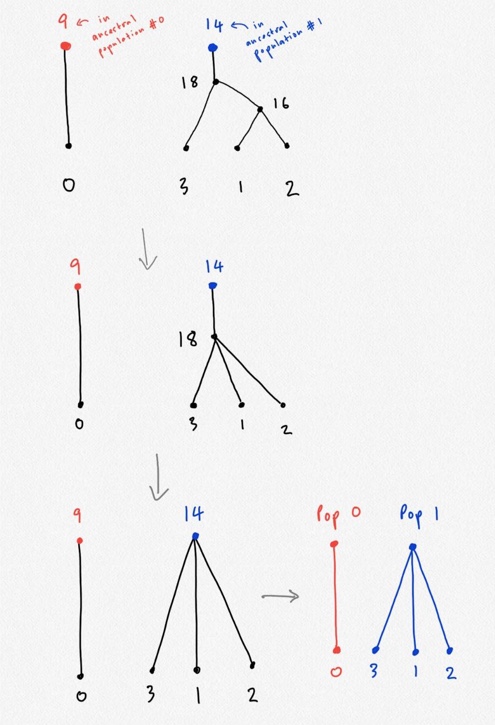 9 ← in
ancestral
population #0
14 ← in
ancestral
population #1
18
16
0 3 1 2
9 14
18
0 3 1 2
9 14 Pop 0 Pop 1
0 3 1 2 0 3 1 2